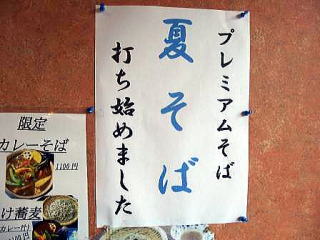 プレミアムそば
夏そば
打ち始めました
限定
カレーそば
1100円
け蕎麦